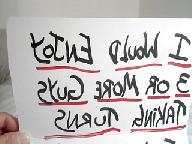 I WOULD ENJOY
3 OR MORE GUYS
TAKING TURNS